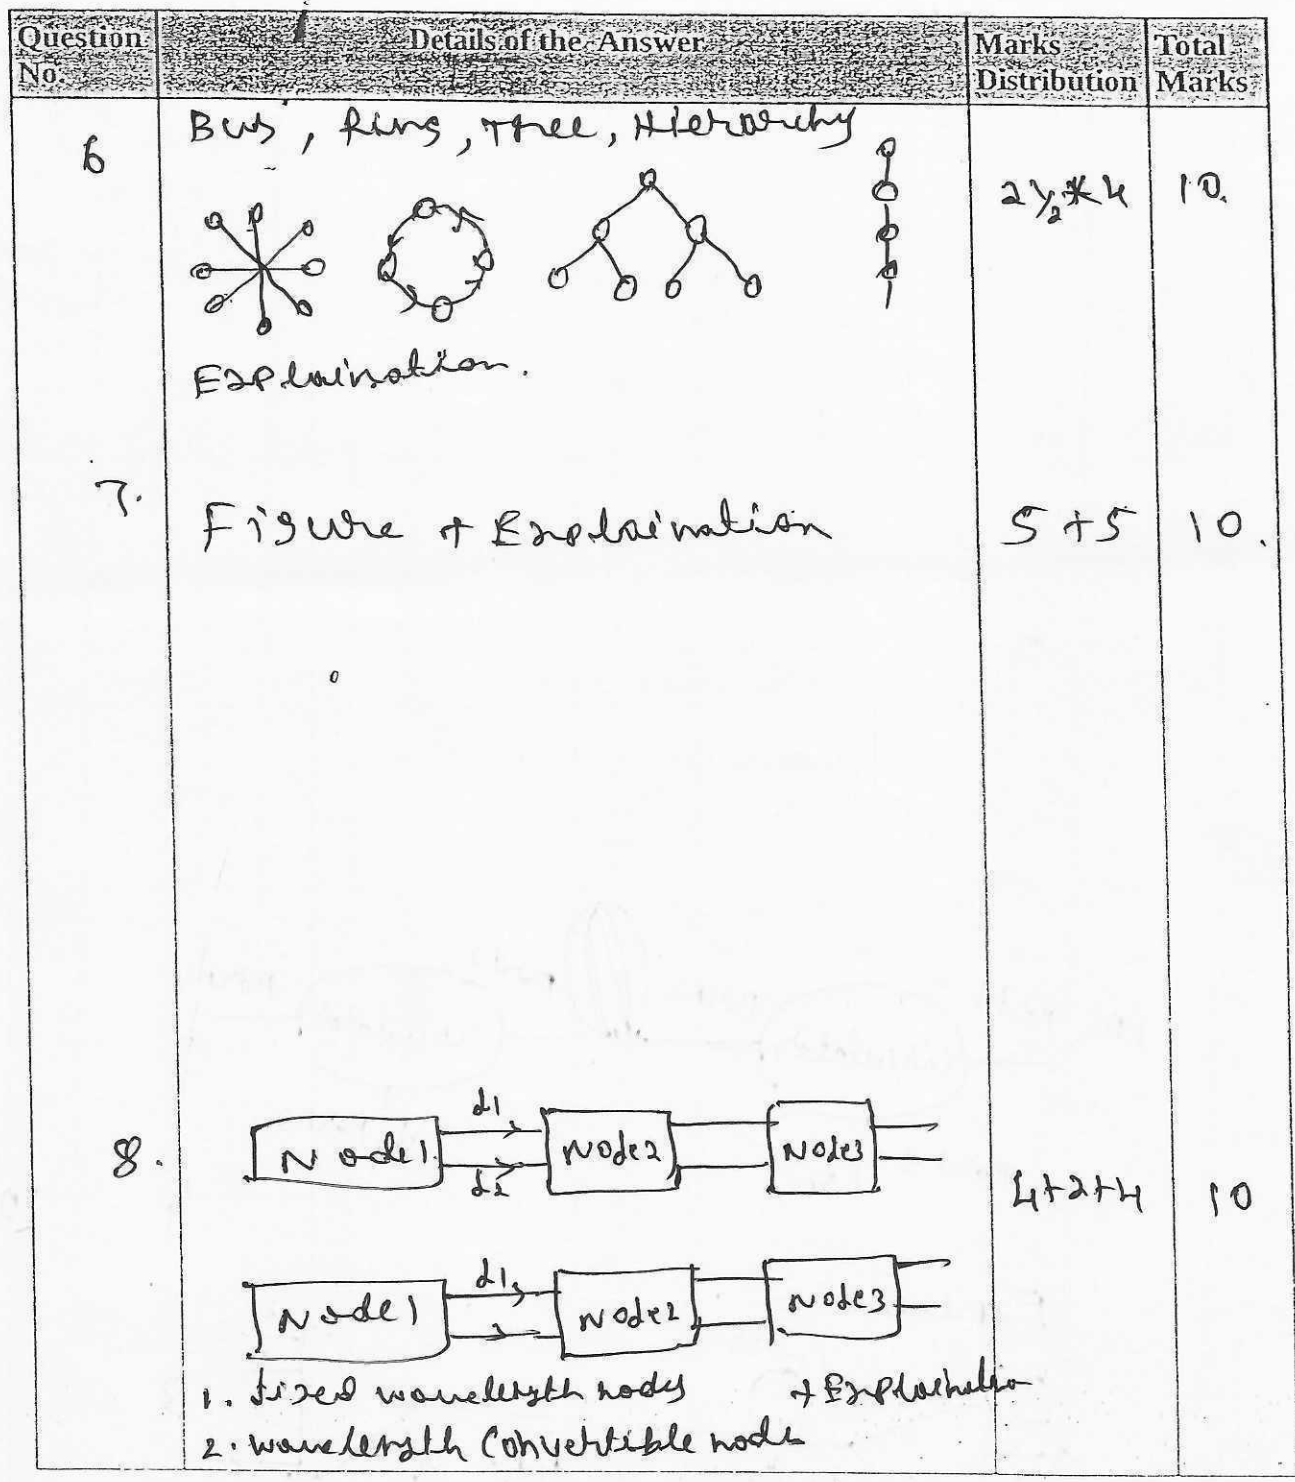 Question No. Details of the Answer Marks Distribution Total Marks
6 Bus, Ring, Tree, Hierarchy 2½*4 10.
Explaination.
7. Figure + Explaination 5+5 10.
8. Node1 d1 d2 Node2 Node3 4+2+4 10
Node1 d1 Node2 Node3
1. fixed wavelength nodes + Explaination
2. wavelength Convertible node